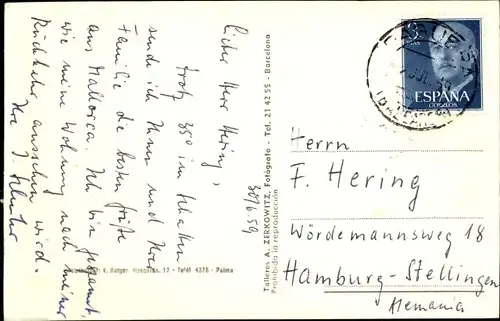 30/6.59
Lieber Herr Hering,
trotz 35° im Schatten
sende ich Ihnen und Ihrer
Familie die besten Grüße
aus Mallorca. Ich bin gespannt,
wie meine Wohnung nach meiner
Rückkehr aussehen wird.
Ihr
Talleres A. ZERKOWITZ, Fotógrafo - Tel. 21 42 55 - Barcelona
Prohibida la reproducción
- Palma
3
PTAS
ESPAÑA
CORREOS
Herrn
F. Hering
Wördemannsweg 18
Hamburg-Stellingen
Alemania